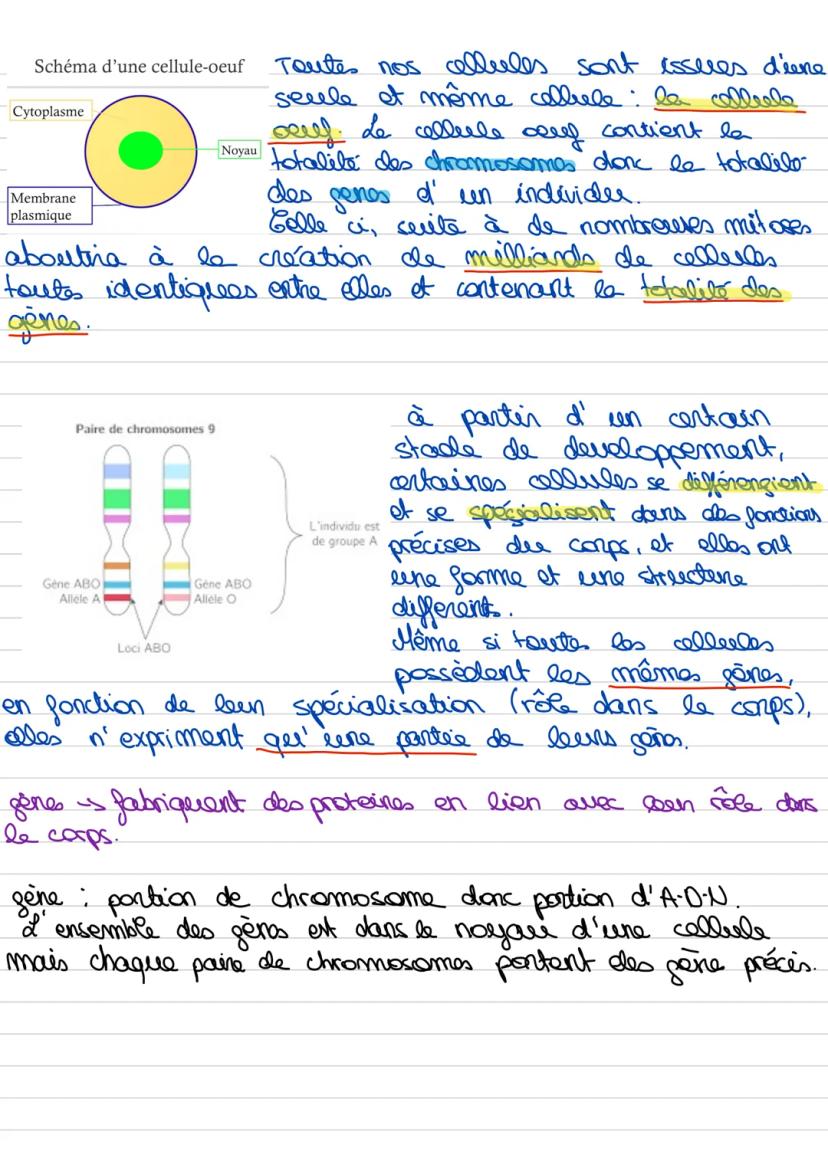 Schéma d'une cellule-oeuf
Cytoplasme
Noyau
Membrane
plasmique
Toutes nos cellules sont issues d'une
seule et même cellule : la cellule
oeuf. La cellule oeuf contient la
totalité des chromosomes donc la totalité
des genes d'un individu.
Celle ci, suite à de nombreuses mitoses
aboutira à la création de milliards de cellules
toutes identiques entre elles et contenant la totalité des
gènes.
Paire de chromosomes 9
L'individu est
de groupe A
Gène ABO
Allèle A
Gène ABO
Allèle O
Loci ABO
à partir d'un certain
stade de developpement,
certaines cellules se différençient
et se spéçialisent dans des fonctions
précises du corps, et elles ont
une forme et une structure
differents.
Même si toutes les cellules
possèdent les mêmes gènes,
en fonction de leur spécialisation (rôle dans le corps),
elles n'expriment qu'une partie de leurs gènes.
gènes → fabriquent des proteines en lien avec leur rôle dans
le corps.
gène : portion de chromosome donc portion d'A.D.N.
L'ensemble des gènes est dans le noyau d'une cellule
mais chaque paire de chromosomes portent des gène précis.